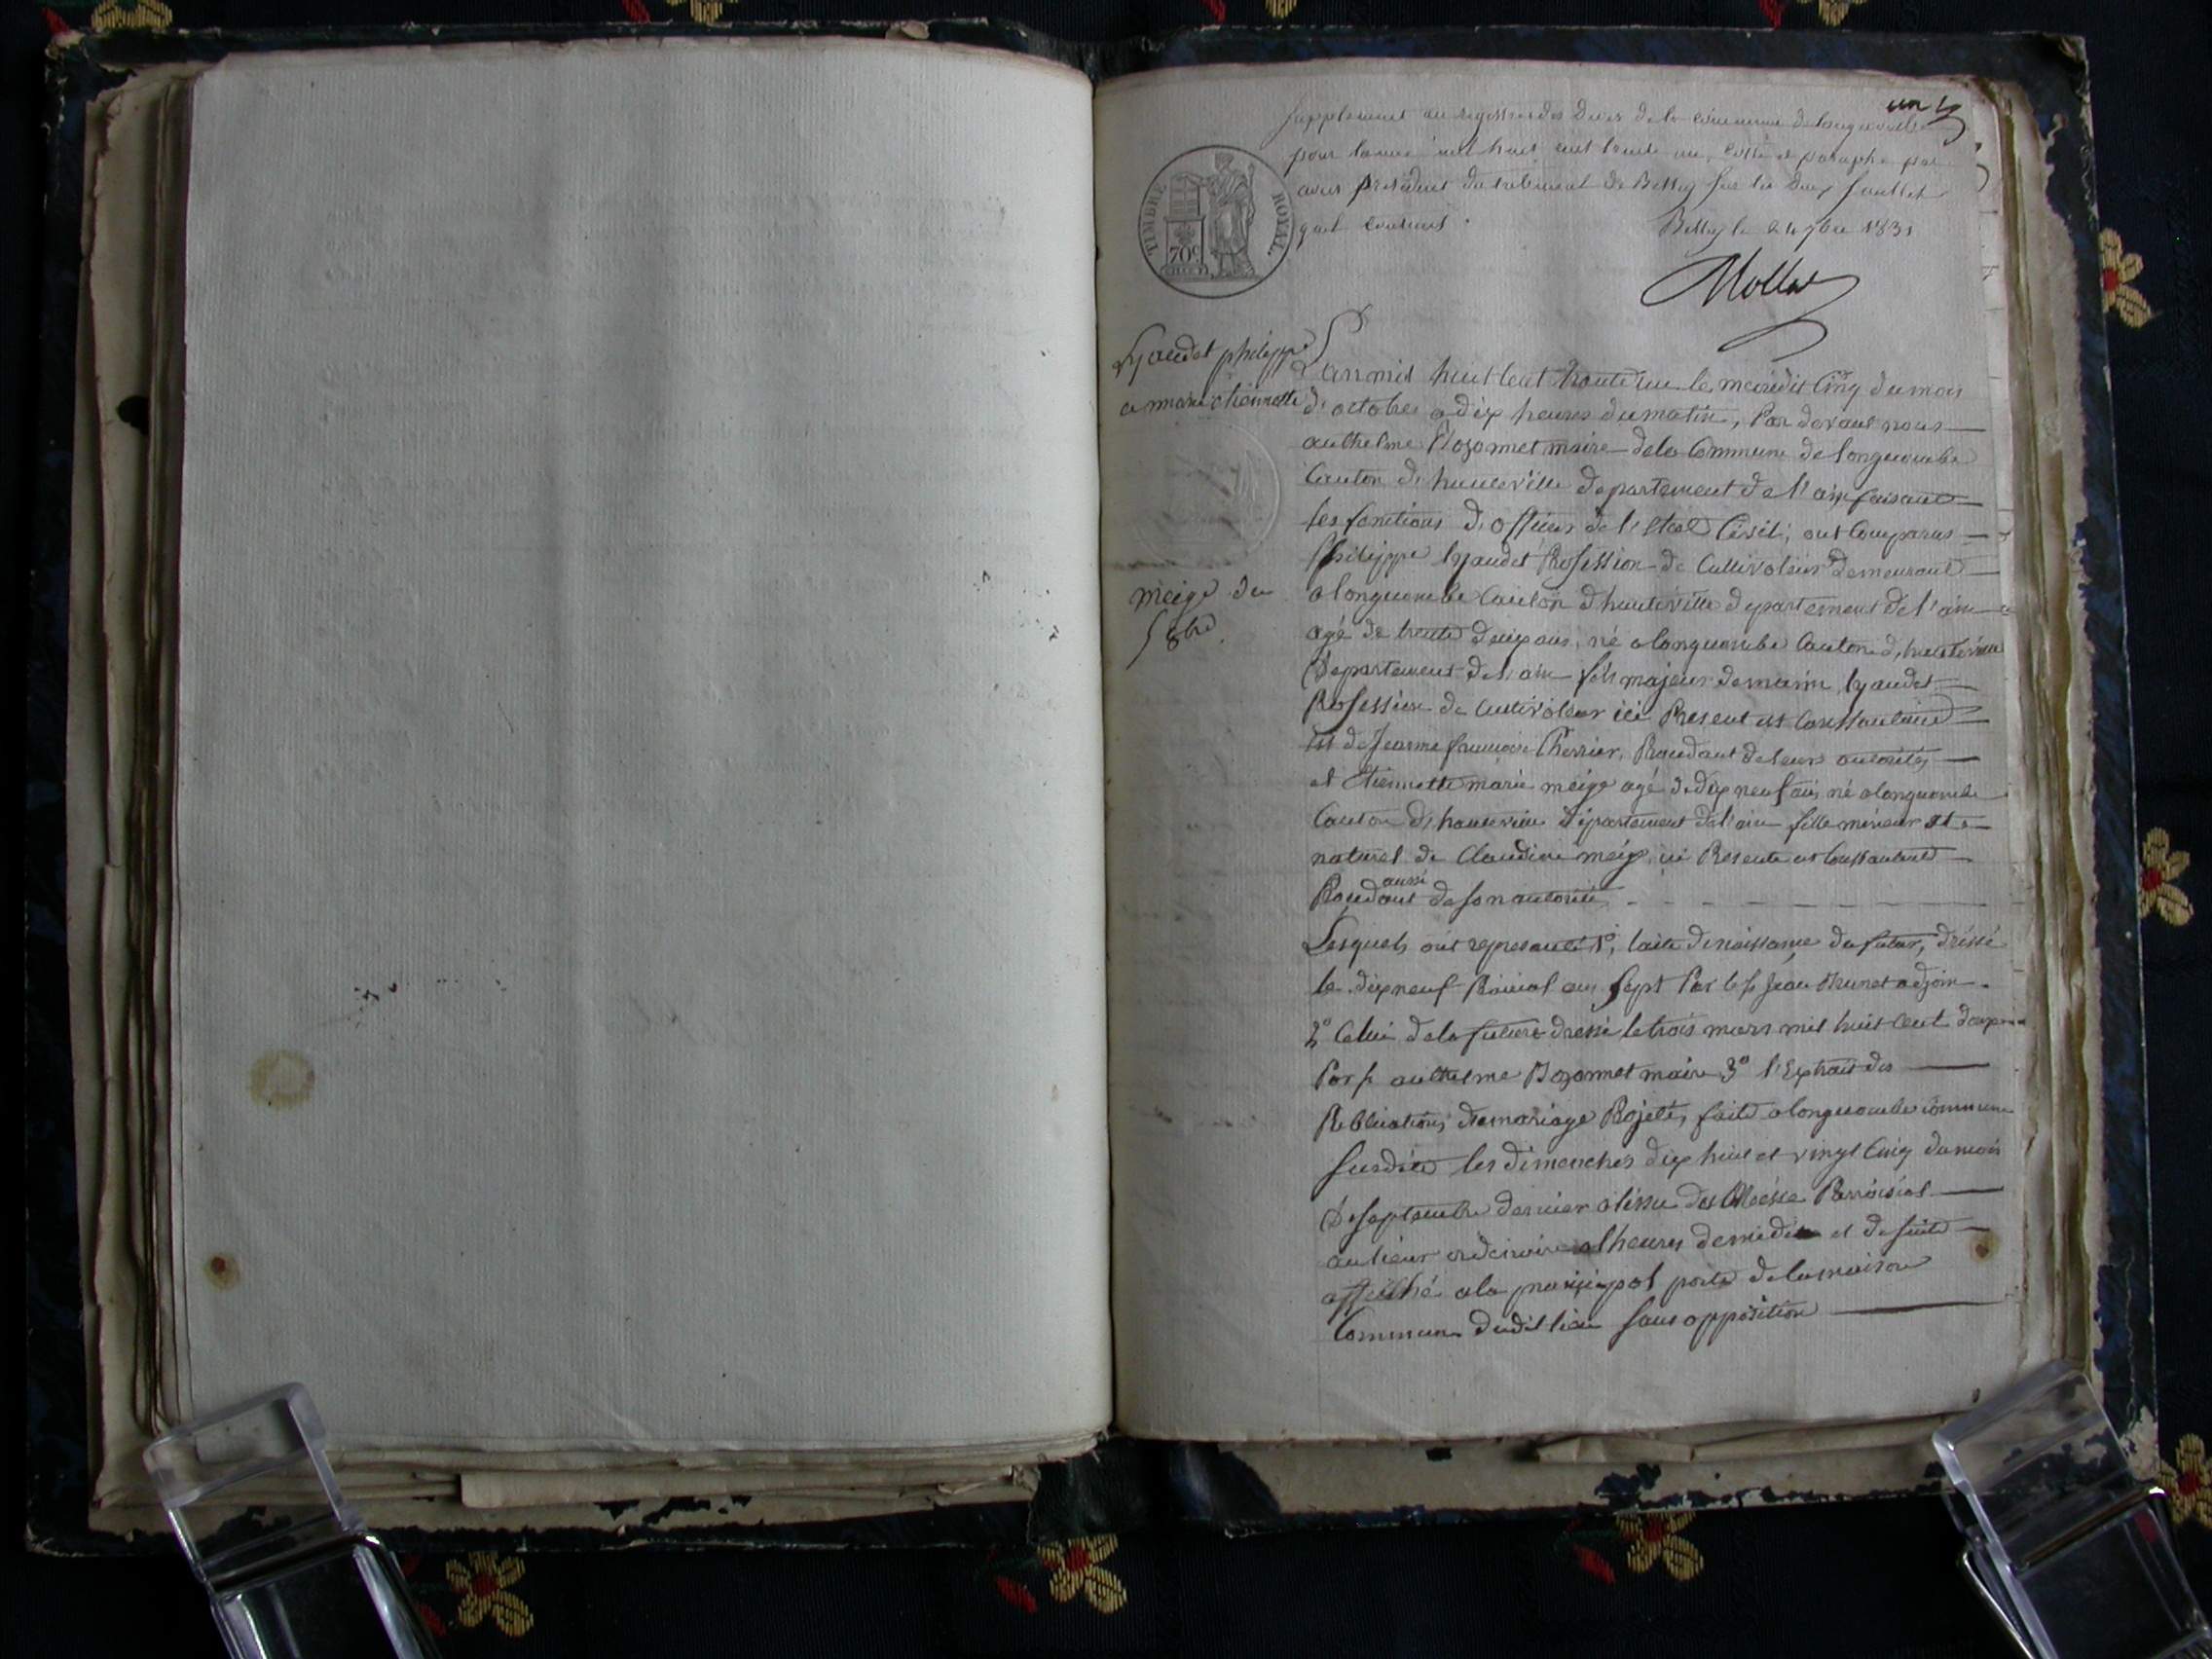 un
supplement au registre des Deces de la commune de longecombe
pour lannée mil huit cent trente un, cotté et paraphé par
nous président du tribunal de Belley sur les deux feuillets
quil contient.
Belley le 24 7bre 1831
Mollet
TIMBRE ROYAL.
70c
Lyaudet philippe
a marie etiennette
meige du
5 8bre
L'an mil huit Cent trente un le mercredit Cinq du mois
d'octobre a dix heures du matin, Par devant nous
anthelme Bozonnet maire de la Commune de longecombe
Canton d'hauteville departement de l'ain faisant
les fonctions d'officier de l'Etat Civil; ont Comparus
Philippe lyaudet Profession de Cultivateur Demeurant
a longecombe Canton d'hauteville departement de l'ain
agé de trente deux ans, né a longecombe Canton d'hauteville
Departement de l'ain fils majeur de marin lyaudet
Profession de Cultivateur ici Present et Consantant
et de Jeanne francoise Cherrier, Procedant de leurs autorités
et Etiennette marie meige agé de dix neuf ans, né a longecombe
Canton d'hauteville departement de l'ain fille mineur et
naturel de Claudine meige ici Presente et Consantante
aussi
Procedant de son autorité
Lesquels ont represanté 1°, l'acte de naissance du futur, dressé
le dix neuf Prairial an sept Par le sr Jean Brunet adjoin
2° Celui de la future dressé le trois mars mil huit Cent douze
Par sr anthelme Bozonnet maire 3° l'Extrait des
Publications de mariage Projeté, faite a longecombe commune
susdite les dimenches dix huit et vingt Cinq du mois
De septembre dernier a l'issu de Messe Parroissial
au lieux ordinaire a l'heures de midi et de suite
affiché a la principal porte de la maison
Commune dudit lieu sans opposition